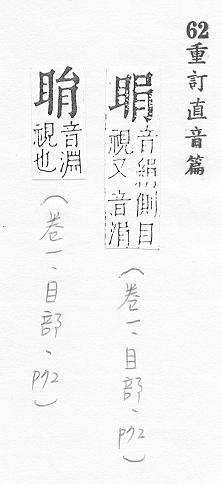 62重訂直音篇
睊音絹側目
視又音涓
(卷一、目部、P72)
䏍音淵
視也
(卷一、目部、P72)